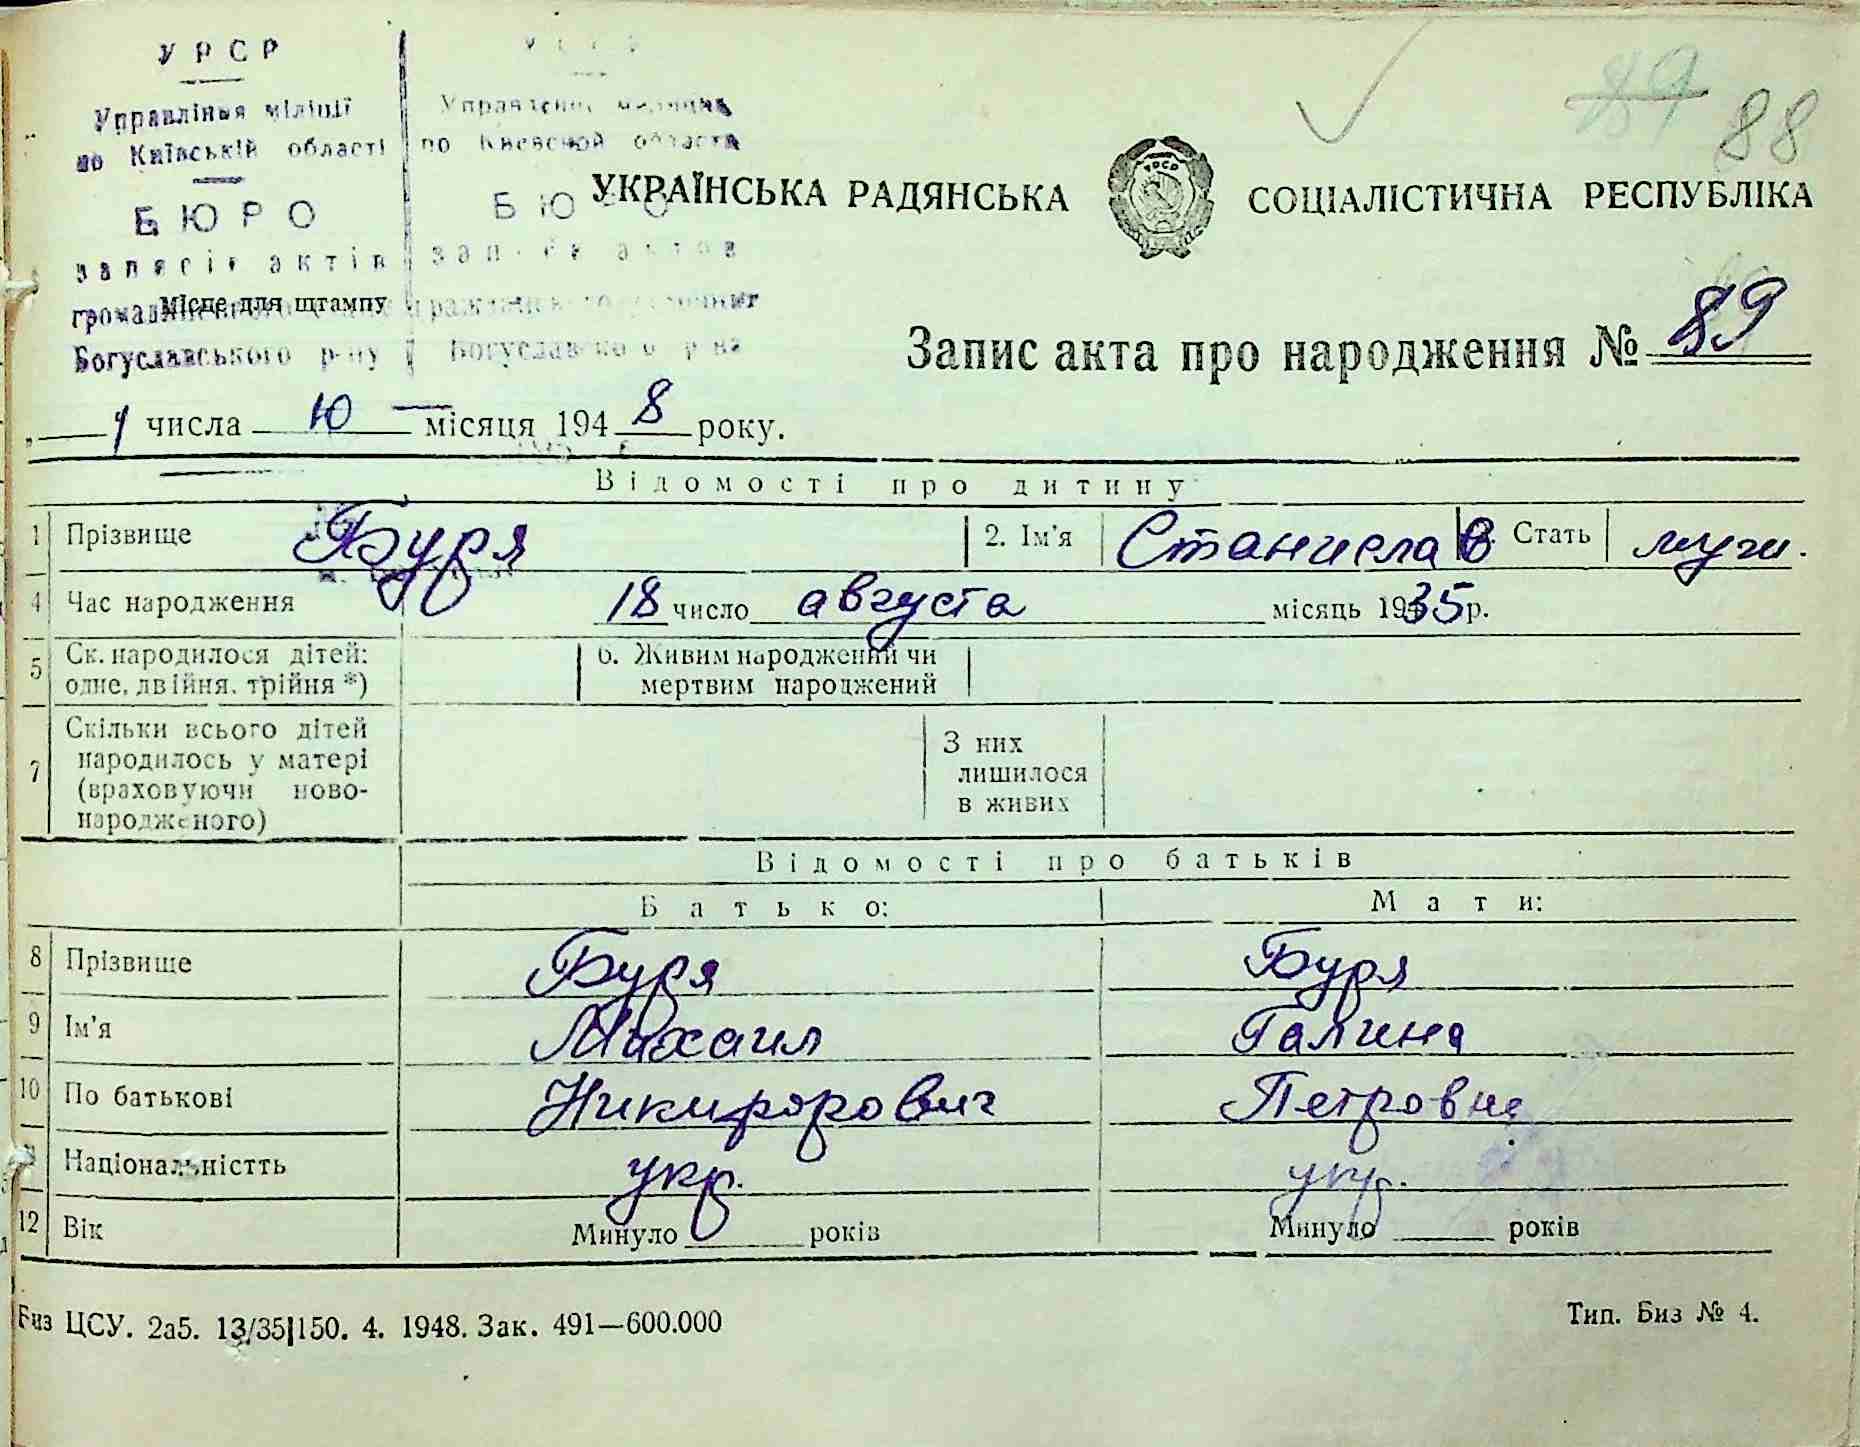 УРСР
Управління міліції
по Київській області
БЮРО
записів актів
Богуславського р-ну
Управление милиции
по Киевской области
БЮРО
записи актов
Богуславского р-на
Місце для штампу
89
88
УКРАЇНСЬКА РАДЯНСЬКА СОЦІАЛІСТИЧНА РЕСПУБЛІКА
Запис акта про народження № 89
числа 10 місяця 1948 року.
Відомості про дитину
1 Прізвище Буря 2. Ім'я Станислав Стать муж.
4 Час народження 18 число августа місяць 1935 р.
5 Ск. народилося дітей: 6. Живим народжений чи
одне, двійня, трійня *) мертвим народжений
7 Скільки всього дітей
народилось у матері
(враховуючи ново-
народженого)
З них
лишилося
в живих
Відомості про батьків
Батько: Мати:
8 Прізвище Буря Буря
9 Ім'я Михаил Галина
10 По батькові Никифорович Петровна
Національністть укр. укр.
12 Вік Минуло років Минуло років
Биз ЦСУ. 2а5. 13/35|150. 4. 1948. Зак. 491—600.000 Тип. Биз № 4.